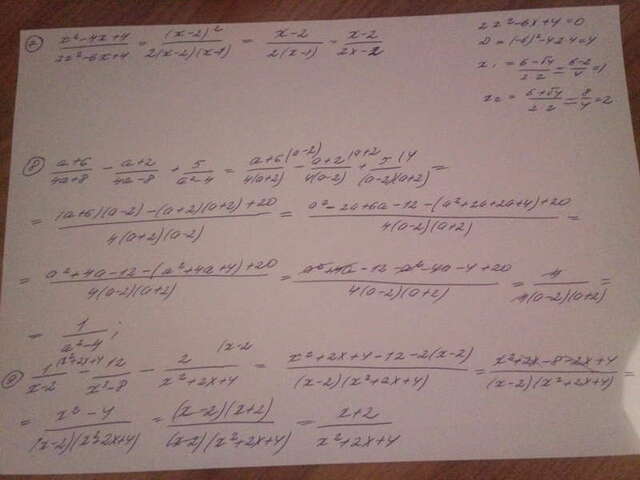 7) (x²-4x+4)/(2x²-6x+4) = (x-2)²/(2(x-2)(x-1)) = (x-2)/(2(x-1)) = (x-2)/(2x-2)
2x²-6x+4=0
D=(-6)²-4·2·4=4
x₁ = (6-√4)/(2·2) = (6-2)/4 = 1
x₂ = (6+√4)/(2·2) = 8/4 = 2
8) (a+6)/(4a+8) - (a+2)/(4a-8) + 5/(a²-4) = (a+6)/(4(a+2)) - (a+2)/(4(a-2)) + 5/((a-2)(a+2)) =
= ((a+6)(a-2)-(a+2)(a+2)+20)/(4(a+2)(a-2)) = (a²-2a+6a-12-(a²+2a+2a+4)+20)/(4(a-2)(a+2)) =
= (a²+4a-12-(a²+4a+4)+20)/(4(a-2)(a+2)) = (a²+4a-12-a²-4a-4+20)/(4(a-2)(a+2)) = 4/(4(a-2)(a+2)) =
= 1/(a²-4);
9) 1/(x-2) - 12/(x³-8) - 2/(x²+2x+4) = (x²+2x+4-12-2(x-2))/((x-2)(x²+2x+4)) = (x²+2x-8-2x+4)/((x-2)(x²+2x+4)) =
= (x²-4)/((x-2)(x²+2x+4)) = ((x-2)(x+2))/((x-2)(x²+2x+4)) = (x+2)/(x²+2x+4)